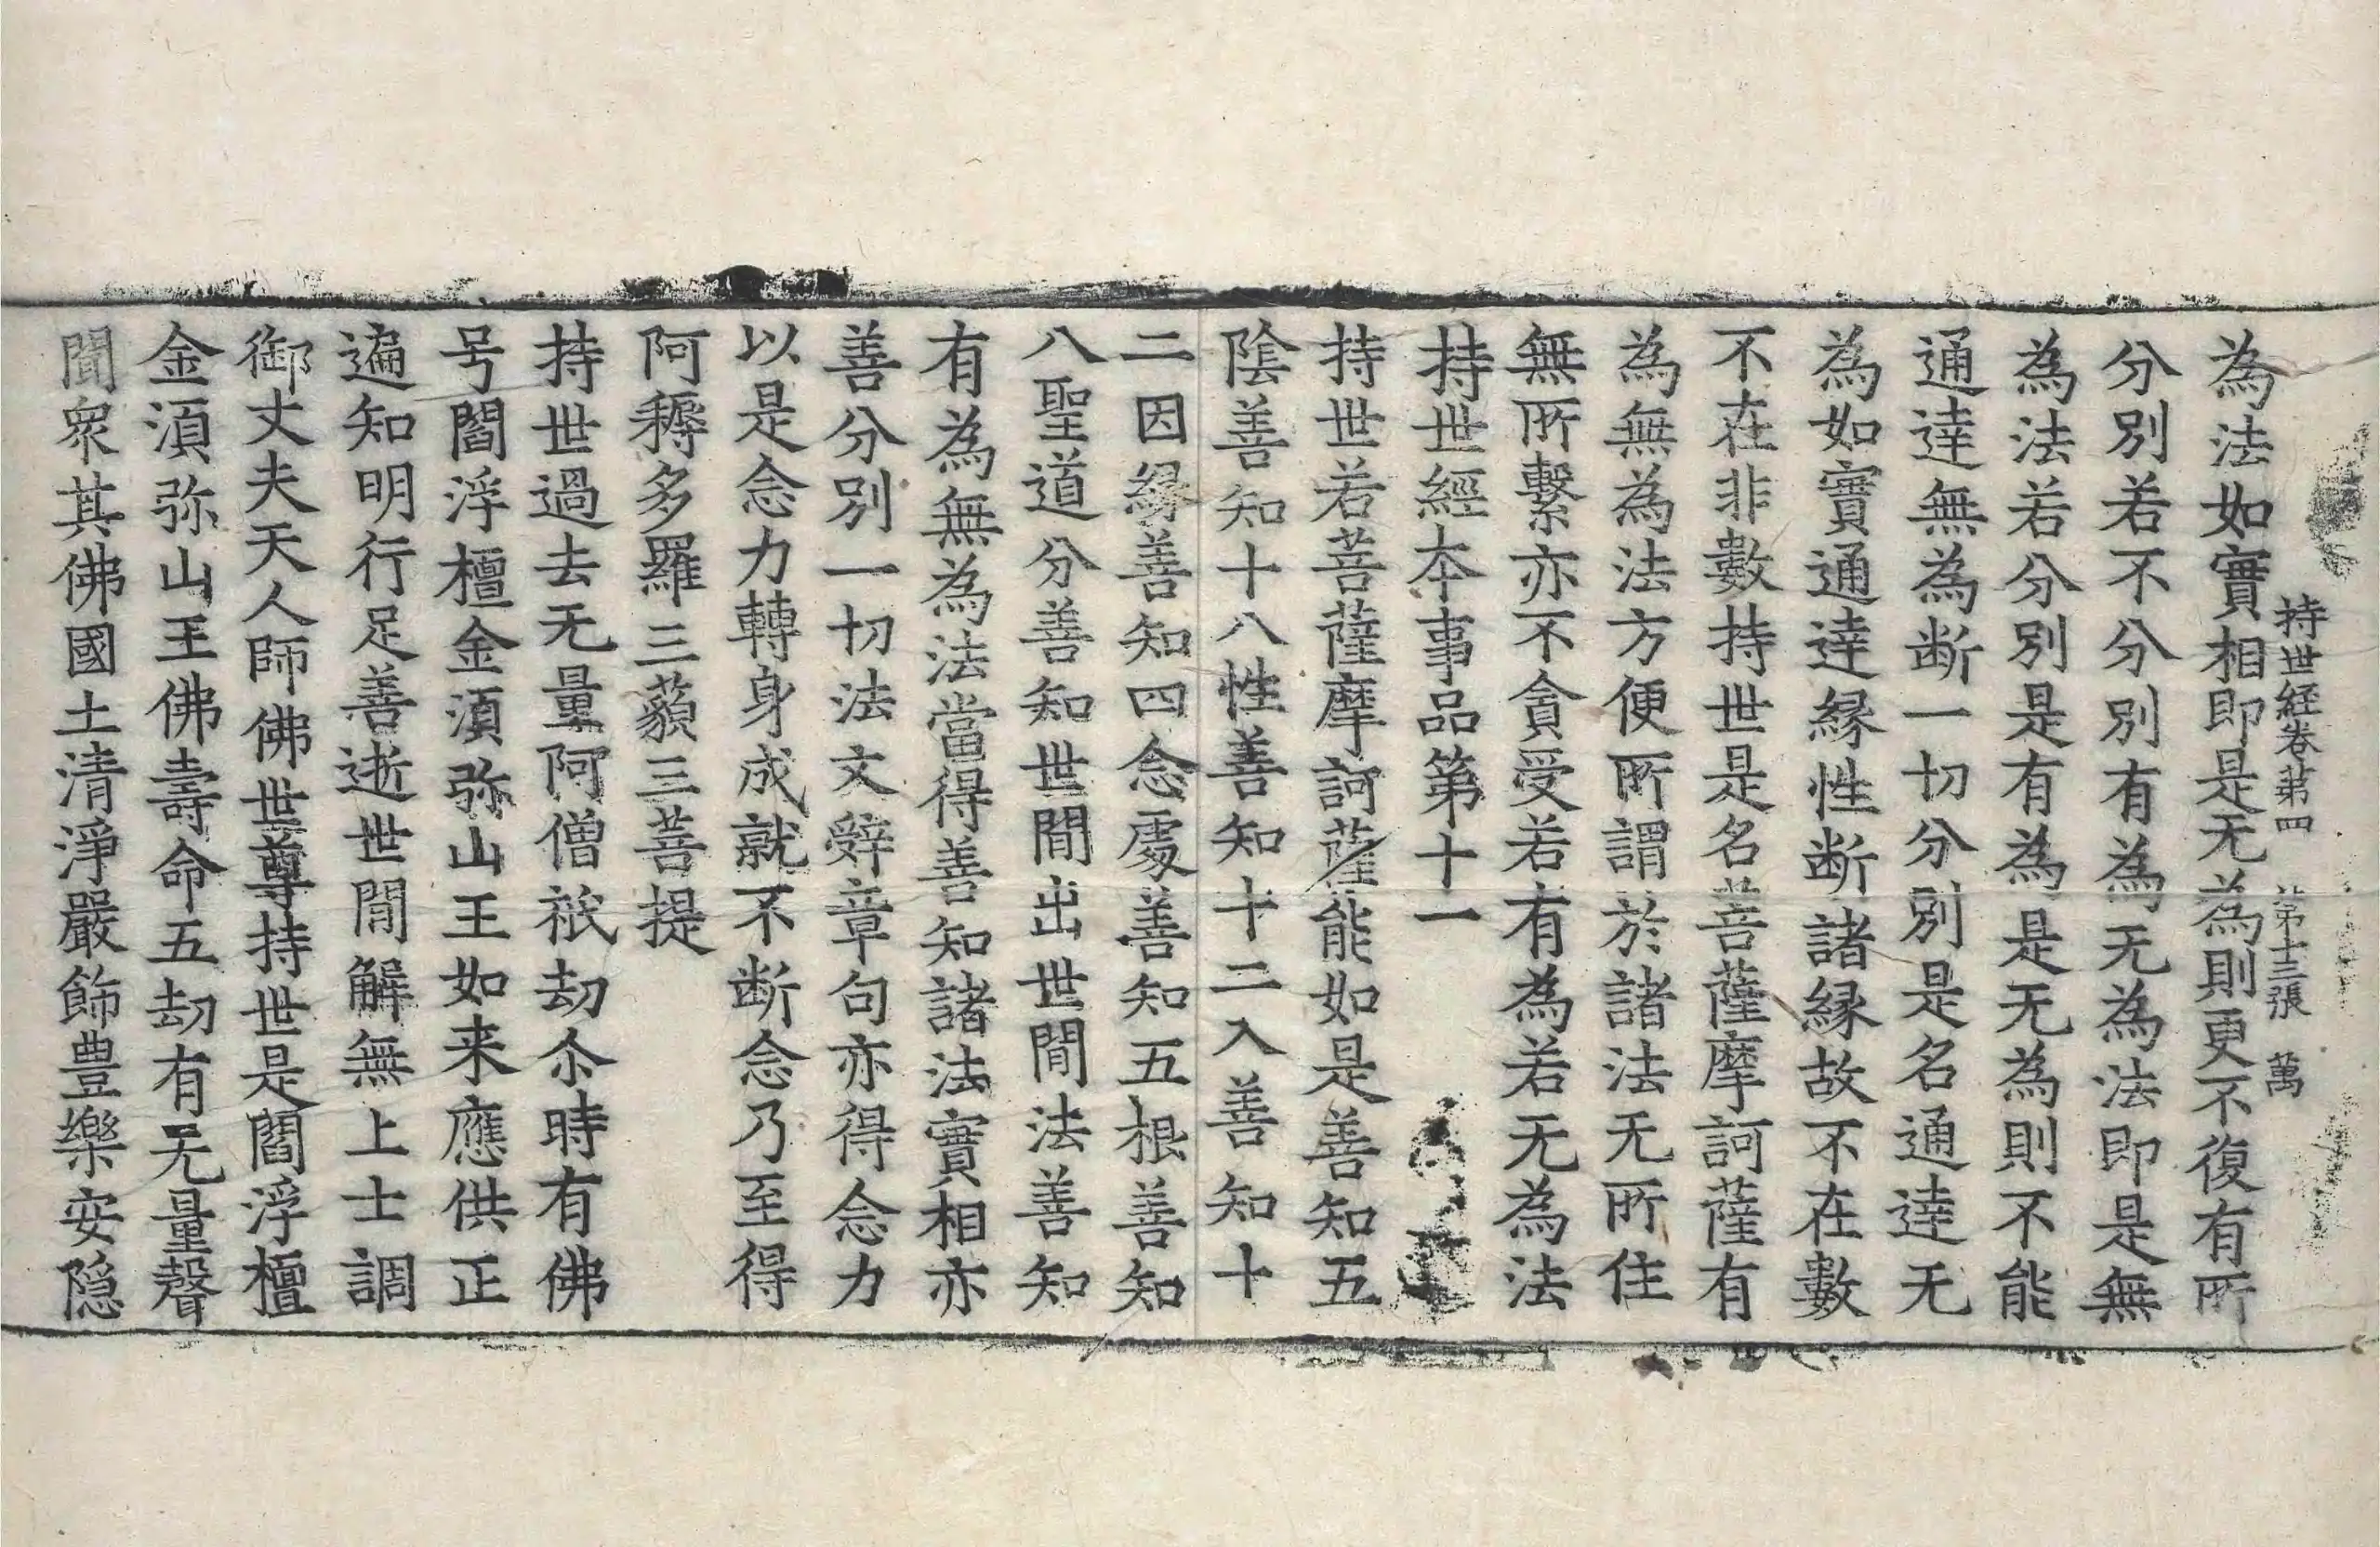 為法如實相即是无為則更不復有所
持世経卷第四　第十三張　萬
分別若不分別有為无為法即是無
為法若分別是有為是无為則不能
通達無為断一切分別是名通達无
為如實通達縁性断諸縁故不在數
不在非數持世是名菩薩摩訶薩有
為無為法方便所謂於諸法无所住
無所繫亦不貪受若有為若无為法
持世經夲事品第十一
持世若菩薩摩訶薩能如是善知五
陰善知十八性善知十二入善知十
二因縁善知四念處善知五根善知
八聖道分善知世間出世間法善知
有為無為法當得善知諸法實相亦
善分別一切法文辤章句亦得念力
以是念力轉身成就不断念乃至得
阿耨多羅三藐三菩提
持世過去无量阿僧祇劫尒時有佛
号閻浮檀金湏弥山王如来應供正
遍知明行足善逝世間解無上士調
御丈夫天人師佛世尊持世是閻浮檀
金湏弥山王佛壽命五劫有无量聲
聞衆其佛國土清淨嚴飾豊樂安隠